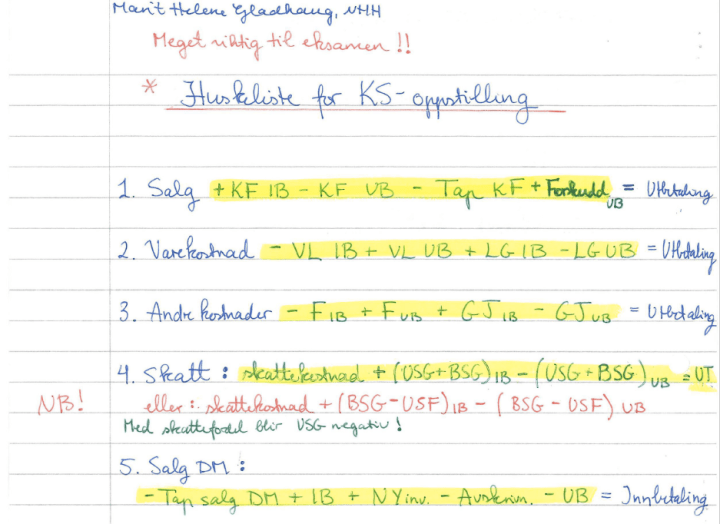 Marit Helene Gladhaug, NHH
Meget viktig til eksamen !!
* Huskeliste for KS-oppstilling
1. Salg + KF IB - KF UB - Tap KF + Forskudd UB = Utbetaling
2. Varekostnad - VL IB + VL UB + LG IB - LG UB = Utbetaling
3. Andre kostnader - F IB + F UB + GJ IB - GJ UB = Utbetaling
4. Skatt : skattekostnad + (USG+BSG) IB - (USG+BSG) UB = UT
NB! eller : skattekostnad + (BSG-USF) IB - (BSG-USF) UB
Med skattefordel blir USG negativ !
5. Salg DM :
- Tap salg DM + IB + NYinv. - Avskrivn. - UB = Innbetaling